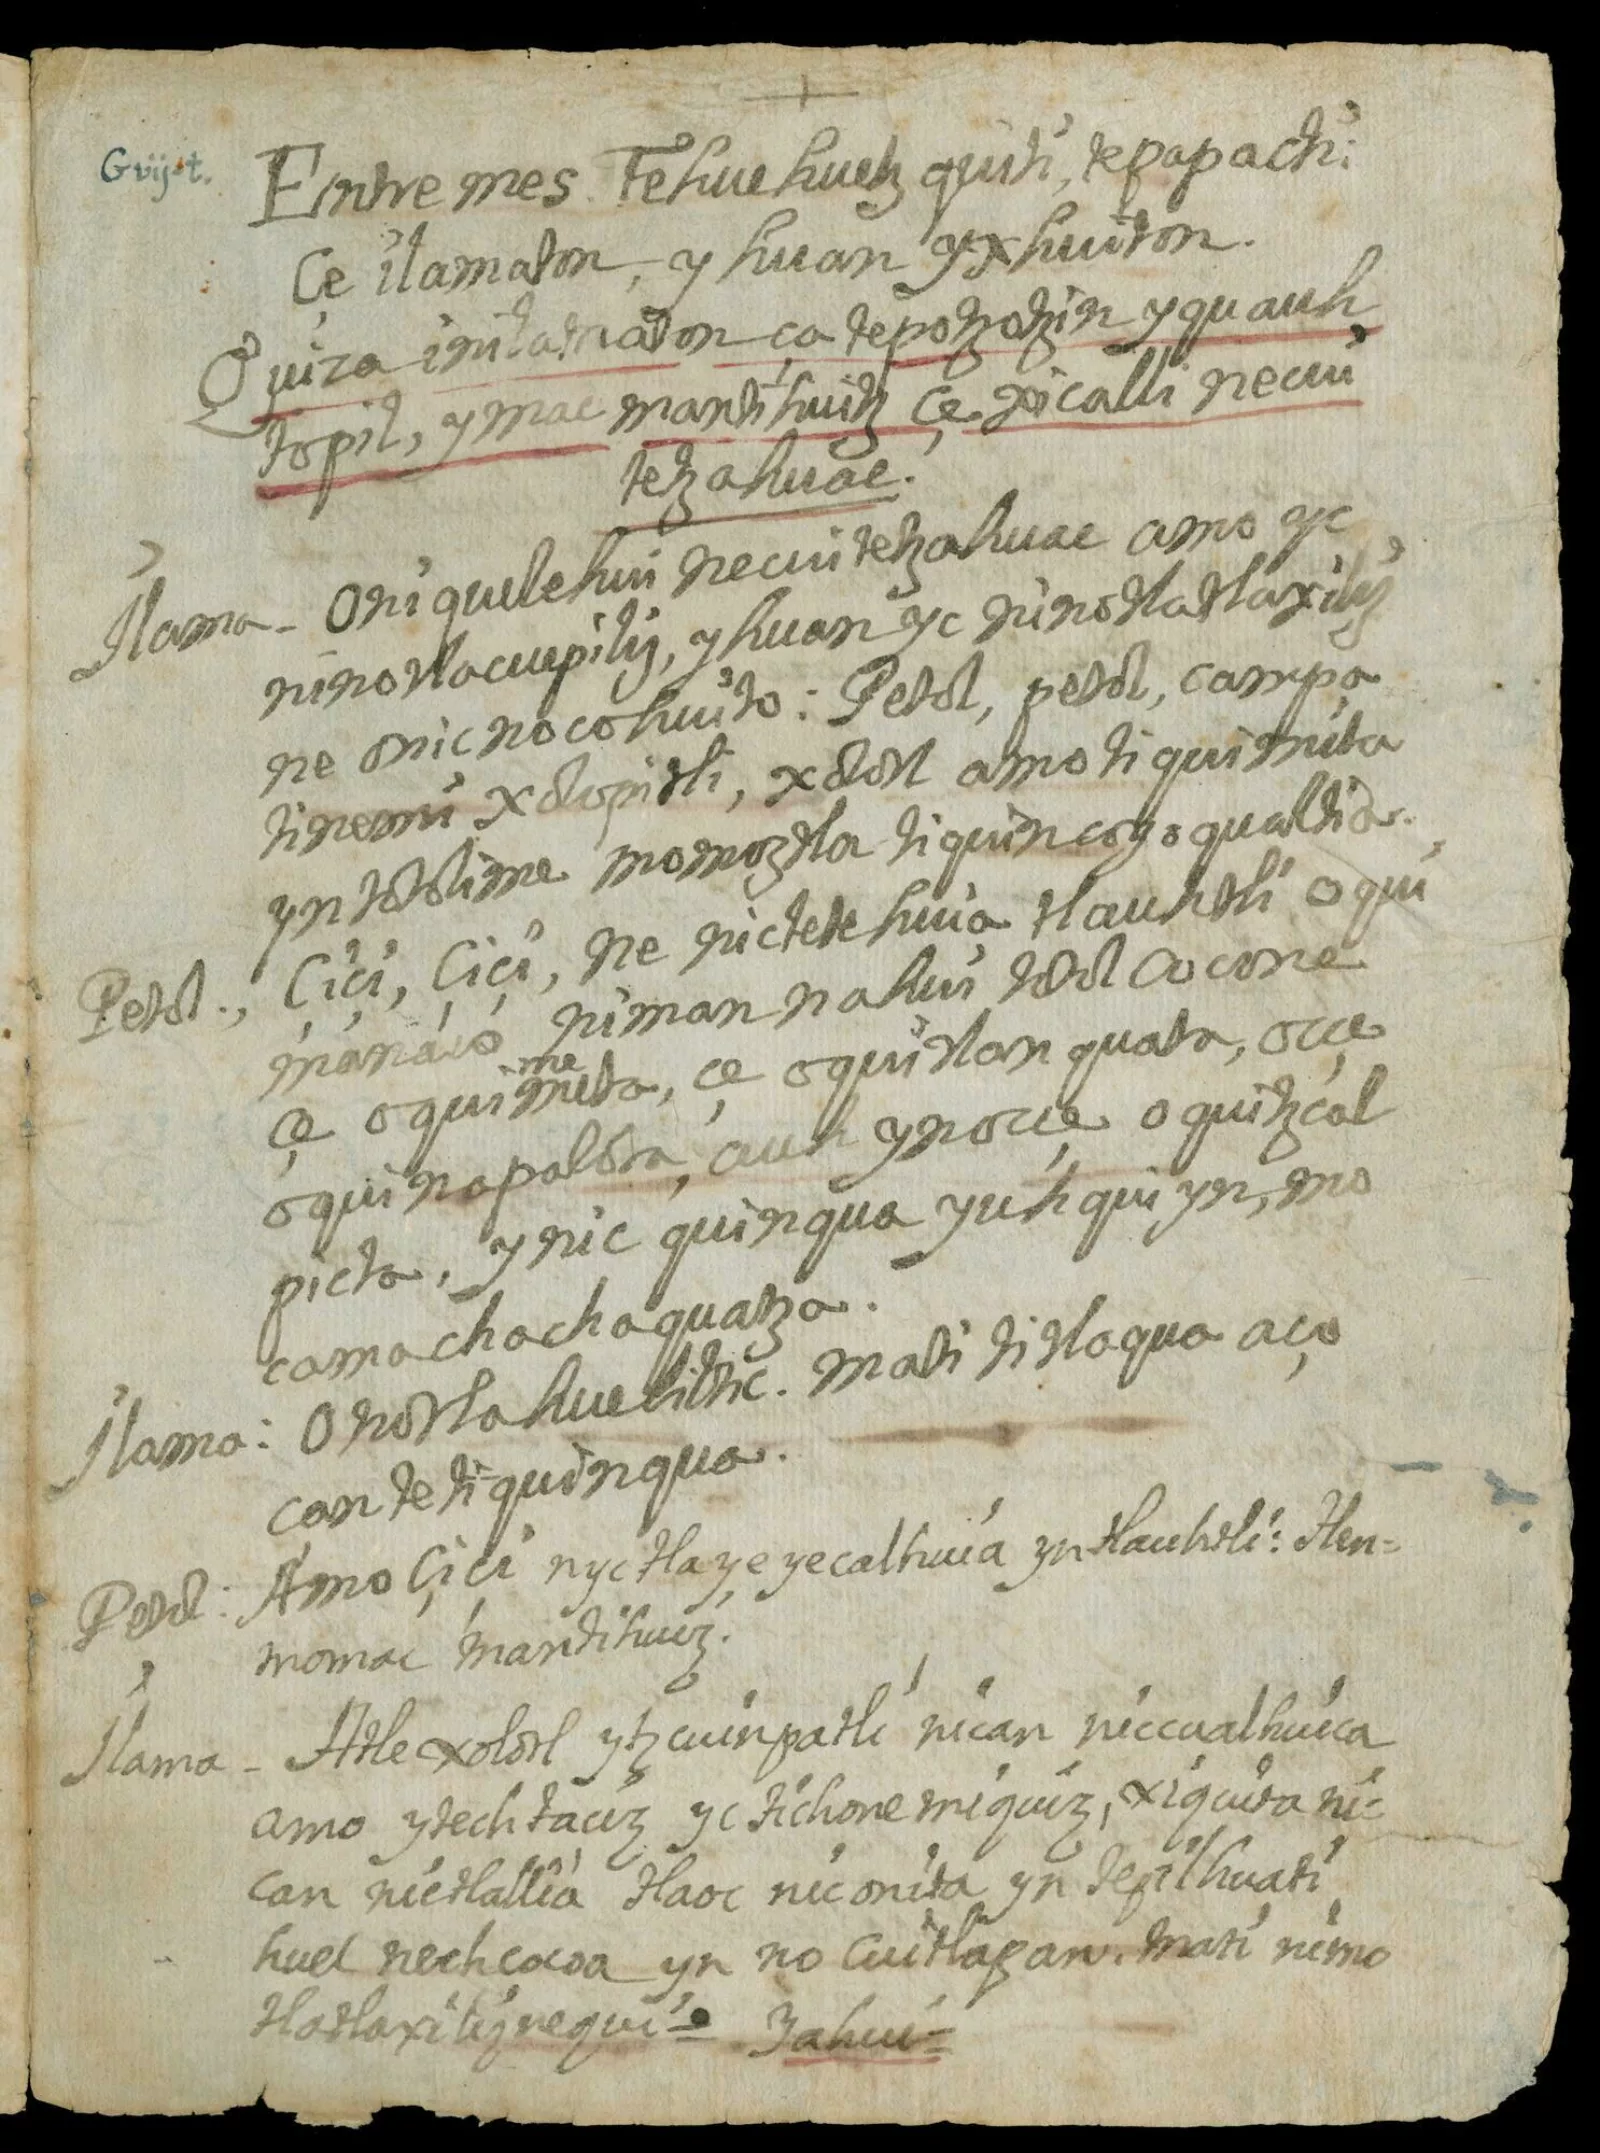 Entremes. Tehuehuetzquiti, tepapacti:
Çe ilamaton, yhuan yxhuiton.
Quiza inilamaton ça tepotzotzin yquauh
topil, ymac mantihuitz çe xicalli necui
tetzahuac.
Ilama - Oniquelehui necuitetzahuac amo yc
ninotlacuepiliz, yhuan yc ninotlatlaxiliz
ne onicnocohuito: Petol, petol, campa
tinemi xolopitli, xolotl amo tiquimita
yn totolime momoztla tiquincoyoqualtia.
Petol., Çiçi, Çiçi, ne nictetehuia tlauhtli oqui
manaco niman nahui totol cocone
çe oquimmeita, çe oquitlanquata, occe
oquinapalota, auh ynocçe oquitzcal
picta, ynic quinqua yuhqui yn, mo
camachachaquatza.
Ilama: Onotlahueliltic. mati titlaqua aço
can tetiquinqua.
Petol: Amo Çiçi nyctlayeyecalhuia yntlauhtli: tlen=
momac mantihuiz.
Ilama - Atle xolotl ytzcuinpatli nican niccualhuica
amo ytech taciz yc tichonemiquiz, xiquita ni=
can nictlallia tlaoc niconita yn tepilhuati
huel nechcocoa yn no cuitlapan. mati nimo
tlatlaxiliznequi= Zahui=